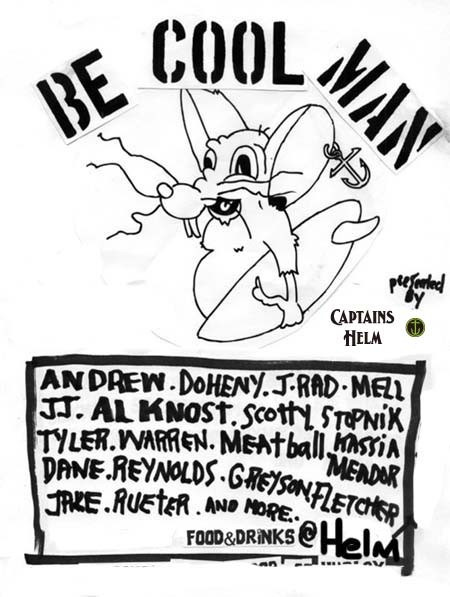 BE COOL MAN
presented
by
CAPTAINS
HELM
ANDREW. DOHENY. J.RAD. MELL
JJ. AL KNOST. SCOTTY. STOPNIK
TYLER. WARREN. MEATball KASSIA
MEADOR
DANE. REYNOLDS. GREYSON FLETCHER
JAKE. RUETER. AND MORE..
FOOD&DRINKS @ Helm